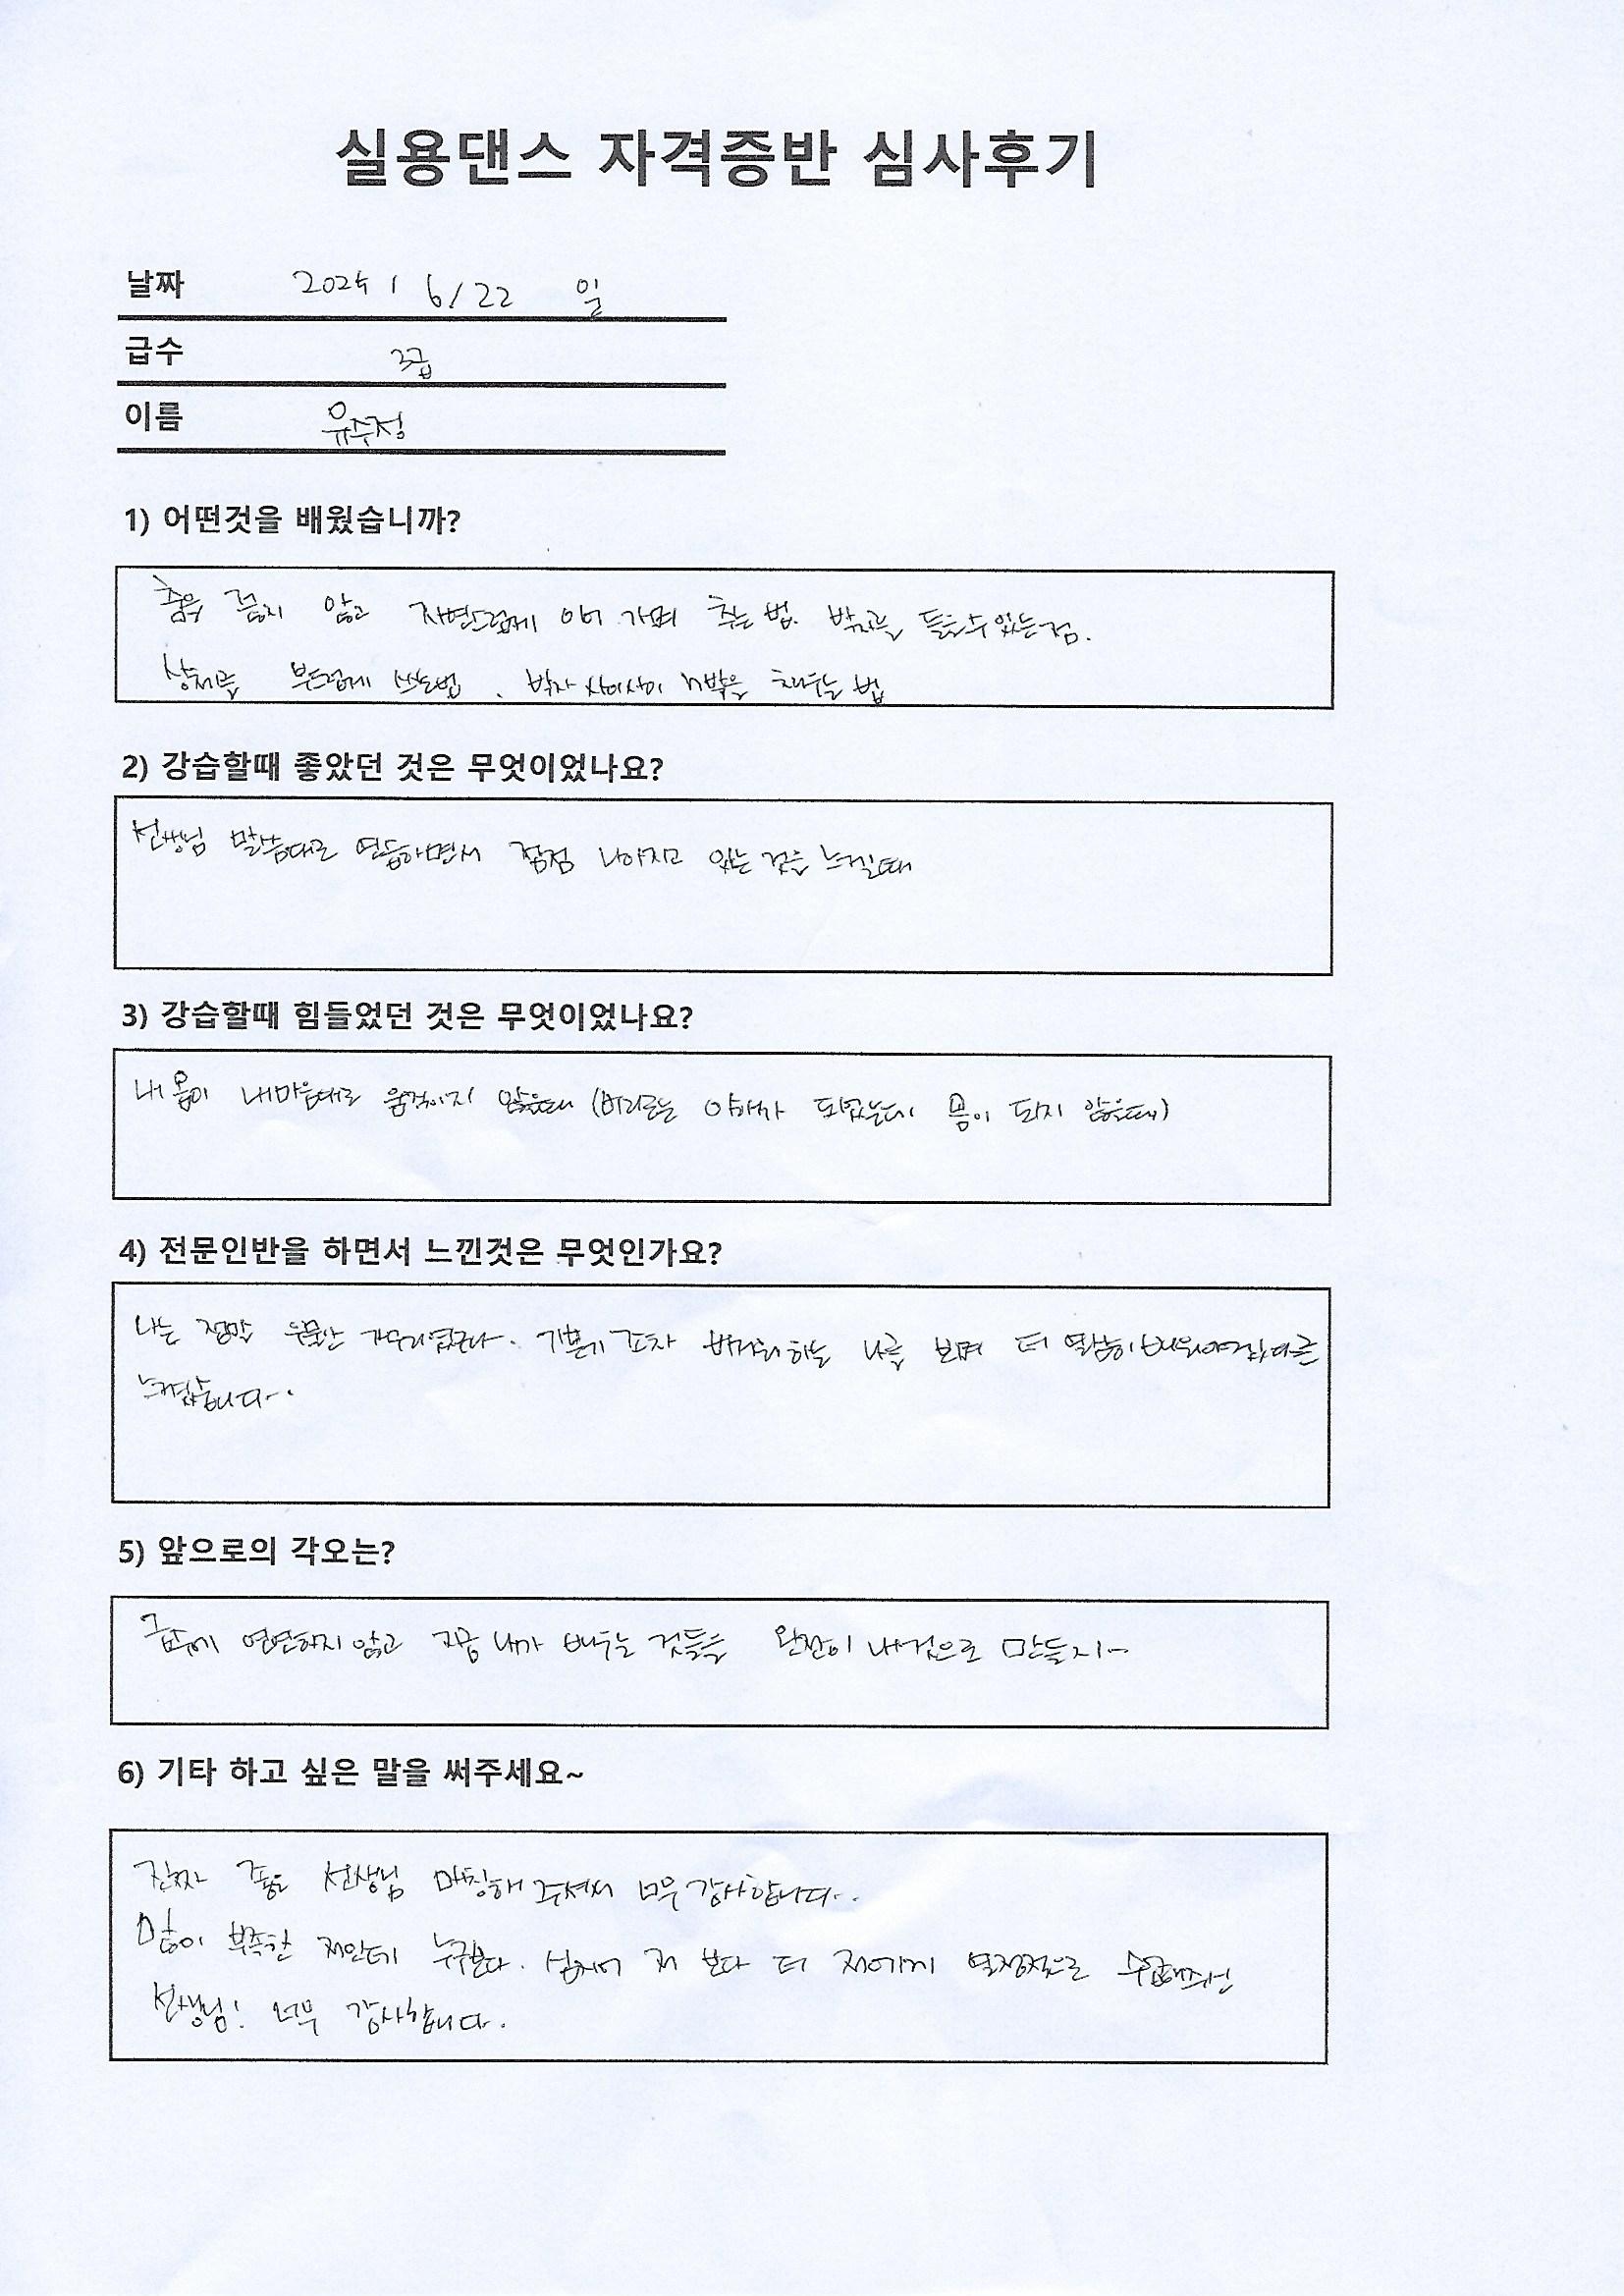 실용댄스 자격증반 심사후기
날짜 2025 6/22 일
급수 3급
이름 유수정
1) 어떤것을 배웠습니까?
춤을 끊지 않고 자연스럽게 이어 가며 추는 법. 박자를 들을수있는점.
상체를 부드럽게 쓰는법. 박자 사이사이 n박을 채우는 법
2) 강습할때 좋았던 것은 무엇이었나요?
선생님 말씀대로 연습하면서 점점 나아지고 있는 것을 느낄때
3) 강습할때 힘들었던 것은 무엇이었나요?
내 몸이 내마음대로 움직이지 않을때 (머리로는 이해가 되었는데 몸이 되지 않을때)
4) 전문인반을 하면서 느낀것은 무엇인가요?
나는 정말 우물안 개구리였구나. 기본기 조차 버거워하는 나를 보며 더 열심히 배워야겠다를
느꼈습니다..
5) 앞으로의 각오는?
급수에 연연하지않고 지금 내가 배우는 것들을 완전히 내것으로 만들자~
6) 기타 하고 싶은 말을 써주세요~
진짜 좋은 선생님 매칭해 주셔서 너무 감사합니다..
많이 부족한 저인데 누구보다. 심지어 저 보다 더 저에게 열정적으로 수업해주신
선생님! 너무 감사합니다.